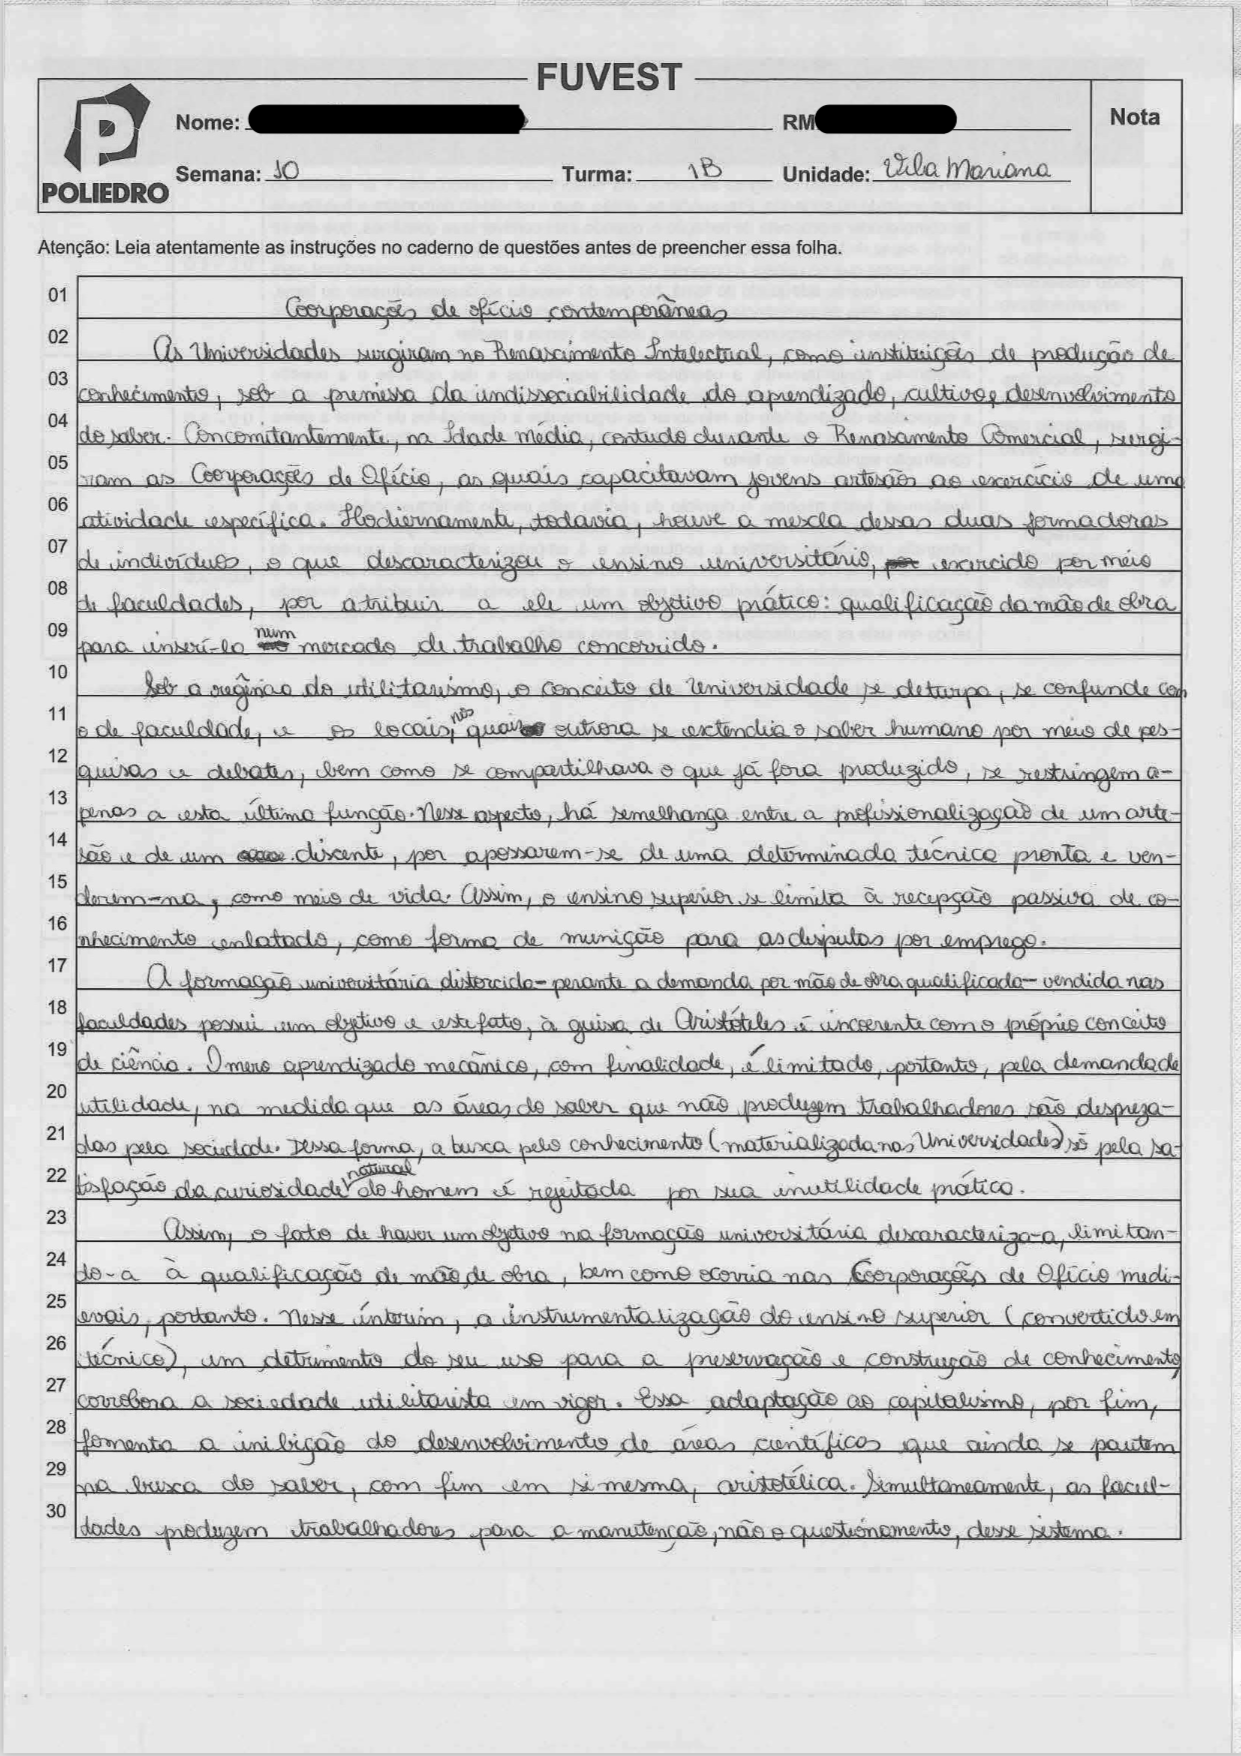 FUVEST
POLIEDRO
Nome:
RM
Nota
Semana: 10
Turma: 1B
Unidade: Vila Mariana
Atenção: Leia atentamente as instruções no caderno de questões antes de preencher essa folha.
01 Coorporações de ofício contemporâneas
02 As Universidades surgiram no Renascimento Intelectual, como instituições de produção de
03 conhecimento, sob a premissa da indissociabilidade do aprendizado, cultivo e desenvolvimento
04 do saber. Concomitantemente, na Idade média, contudo durante o Renascimento Comercial, surgi-
05 ram as Coorporações de Ofício, as quais capacitavam jovens artesãos ao exercício de uma
06 atividade específica. Hodiernamente, todavia, houve a mescla dessas duas formadoras
07 de indivíduos, o que descaracterizou o ensino universitário, exercido por meio
08 de faculdades, por atribuir a ele um objetivo prático: qualificação da mão de obra
09 para inserí-la num mercado de trabalho concorrido.
10 Sob a regência do utilitarismo, o conceito de Universidade se deturpa, se confunde com
11 o de faculdade, e os locais, nos quais outrora se extendia o saber humano por meio de pes-
12 quisas e debates, bem como se compartilhava o que já fora produzido, se restringem a-
13 penas a esta última função. Nesse aspecto, há semelhança entre a profissionalização de um arte-
14 são e de um discente, por apossarem-se de uma determinada técnica pronta e ven-
15 derem-na, como meio de vida. Assim, o ensino superior se limita à recepção passiva de co-
16 nhecimento enlatado, como forma de munição para as disputas por emprego.
17 A formação universitária distorcida - perante a demanda por mão de obra qualificada - vendida nas
18 faculdades possui um objetivo e este fato, à guisa de Aristóteles é incoerente com o próprio conceito
19 de ciência. O mero aprendizado mecânico, com finalidade, é limitado, portanto, pela demanda de
20 utilidade, na medida que as áreas do saber que não produzem trabalhadores são despreza-
21 das pela sociedade. Dessa forma, a busca pelo conhecimento (materializada nas Universidades) só pela sa-
22 tisfação da curiosidade natural do homem é rejeitada por sua inutilidade prática.
23 Assim, o fato de haver um objetivo na formação universitária descaracteriza-a, limitan-
24 do-a à qualificação de mão de obra, bem como ocorria nas Coorporações de Ofício medi-
25 evais, portanto. Nesse ínterim, a instrumentalização do ensino superior (convertido em
26 técnico), em detrimento do seu uso para a preservação e construção de conhecimento,
27 corrobora a sociedade utilitarista em vigor. Essa adaptação ao capitalismo, por fim,
28 fomenta a inibição do desenvolvimento de áreas científicas que ainda se pautem
29 na busca do saber, com fim em si mesma, aristotélica. Simultaneamente, as facul-
30 dades produzem trabalhadores para a manutenção, não o questionamento, desse sistema.